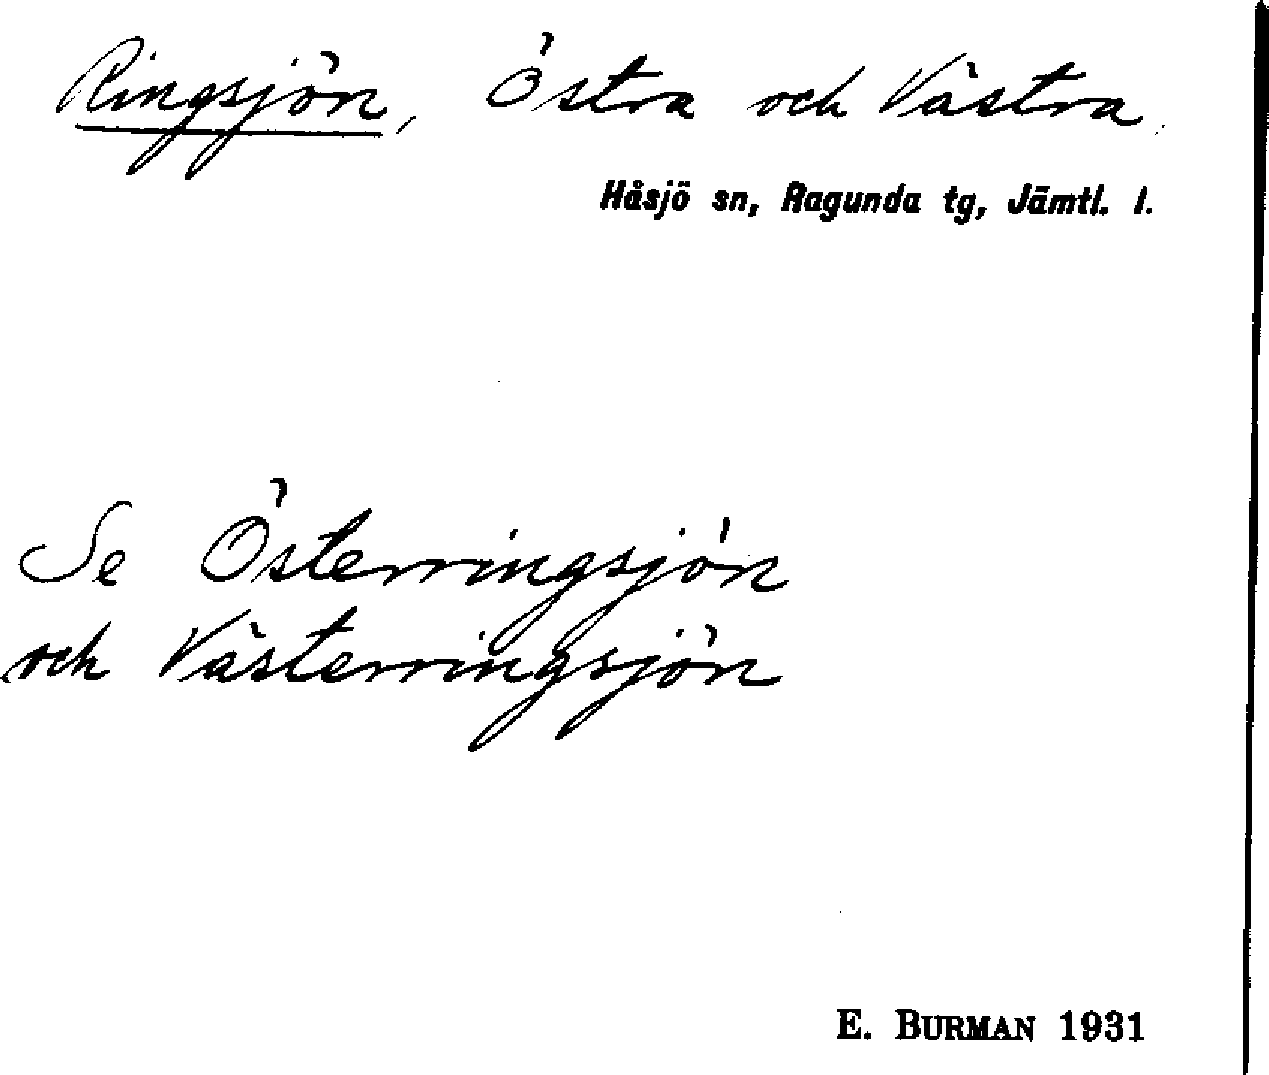 Ringsjön, Östra och Västra
Håsjö sn, Ragunda tg, Jämtl. l.
Se Österringsjön
och Västerringsjön
E. BURMAN 1931